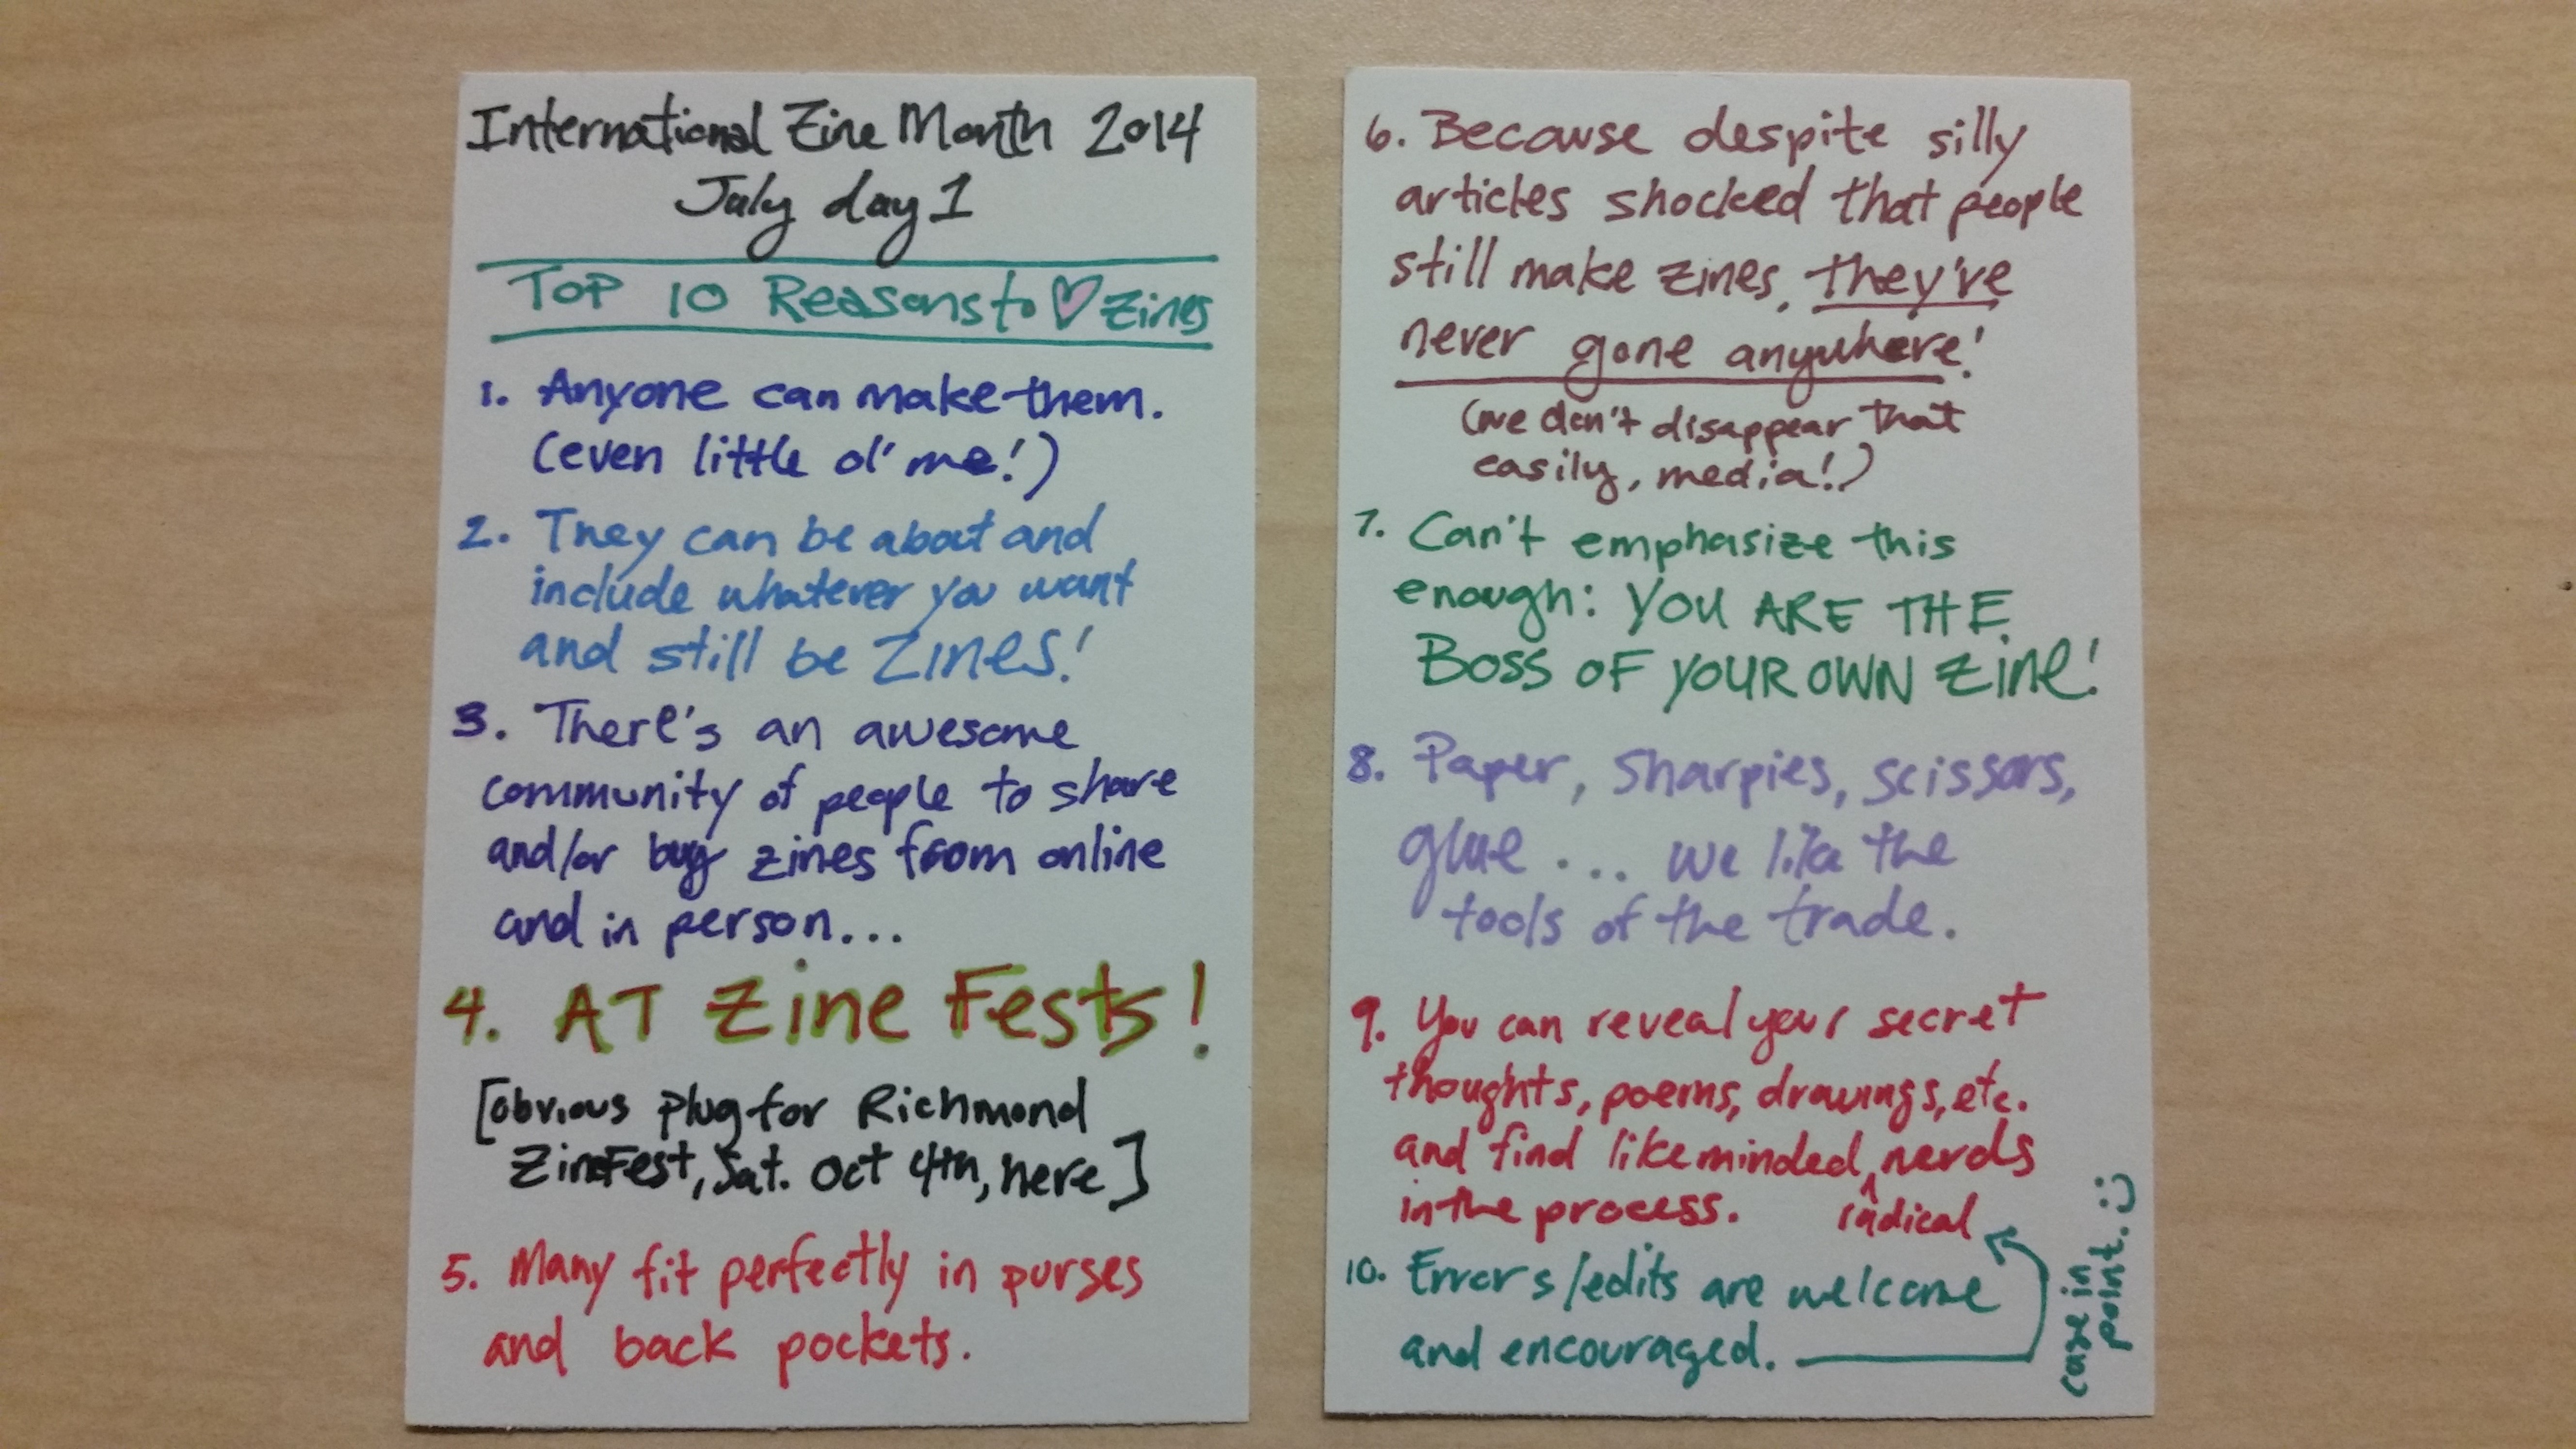 International Zine Month 2014
July day 1
Top 10 Reasons to ♡ zines
1. Anyone can make them.
(even little ol' me!)
2. They can be about and
include whatever you want
and still be Zines!
3. There's an awesome
community of people to share
and/or buy zines from online
and in person...
4. AT Zine Fests!
[obvious plug for Richmond
ZineFest, Sat. Oct 4th, here]
5. Many fit perfectly in purses
and back pockets.
6. Because despite silly
articles shocked that people
still make zines, they've
never gone anywhere!
(we don't disappear that
easily, media!)
7. Can't emphasize this
enough: YOU ARE THE
BOSS OF YOUR OWN Zine!
8. Paper, Sharpies, scissors,
glue.... we like the
tools of the trade.
9. You can reveal your secret
thoughts, poems, drawings, etc.
and find likeminded, nerds
in the process. radical
10. Errors/edits are welcome
and encouraged.
case in
point. :)